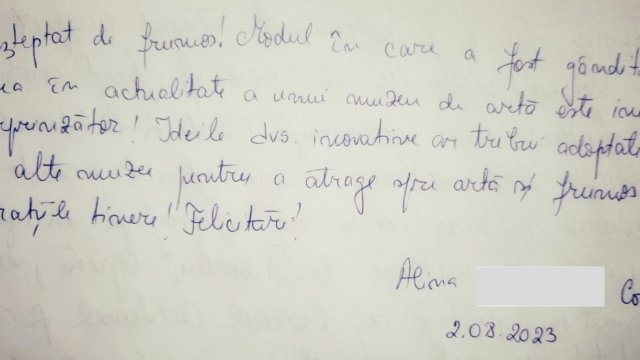 șteptat de frumos! Modul în care a fost gândit
în actualitate a unui muzeu de artă este
prinzător! Ideile dvs. inovative ar trebui adoptate
alte muzee pentru a atrage spre artă și frumos
rațiile tinere! Felicitări!
Alina
Co
2.08.2023